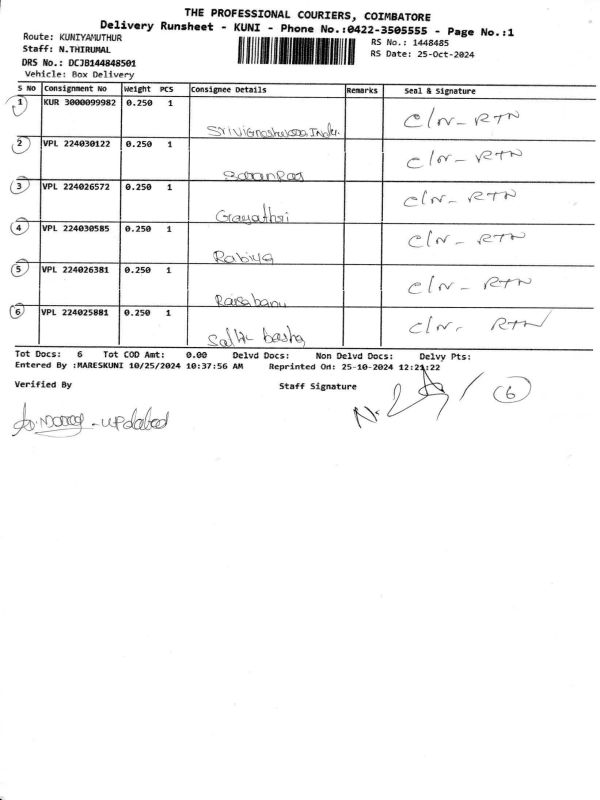 THE PROFESSIONAL COURIERS, COIMBATORE
Delivery Runsheet - KUNI - Phone No.:0422-3505555 - Page No.:1
Route: KUNIYAMUTHUR
RS No.: 1448485
Staff: N.THIRUMAL
RS Date: 25-Oct-2024
DRS No.: DCJB144848501
Vehicle: Box Delivery
S No Consignment No Weight PCS Consignee Details Remarks Seal & Signature
1 KUR 3000099982 0.250 1 C/N- RTN
2 VPL 224030122 0.250 1 C/N- RTN
3 VPL 224026572 0.250 1 C/N- RTN
Gayathri
4 VPL 224030585 0.250 1 C/N- RTN
Rabiya
5 VPL 224026381 0.250 1 C/N- RTN
Raisabanu
6 VPL 224025881 0.250 1 C/N. RTN
basha
Tot Docs: 6 Tot COD Amt: 0.00 Delvd Docs: Non Delvd Docs: Delvy Pts:
Entered By :MARESKUNI 10/25/2024 10:37:56 AM Reprinted On: 25-10-2024 12:21:22
Verified By Staff Signature
6
- updated